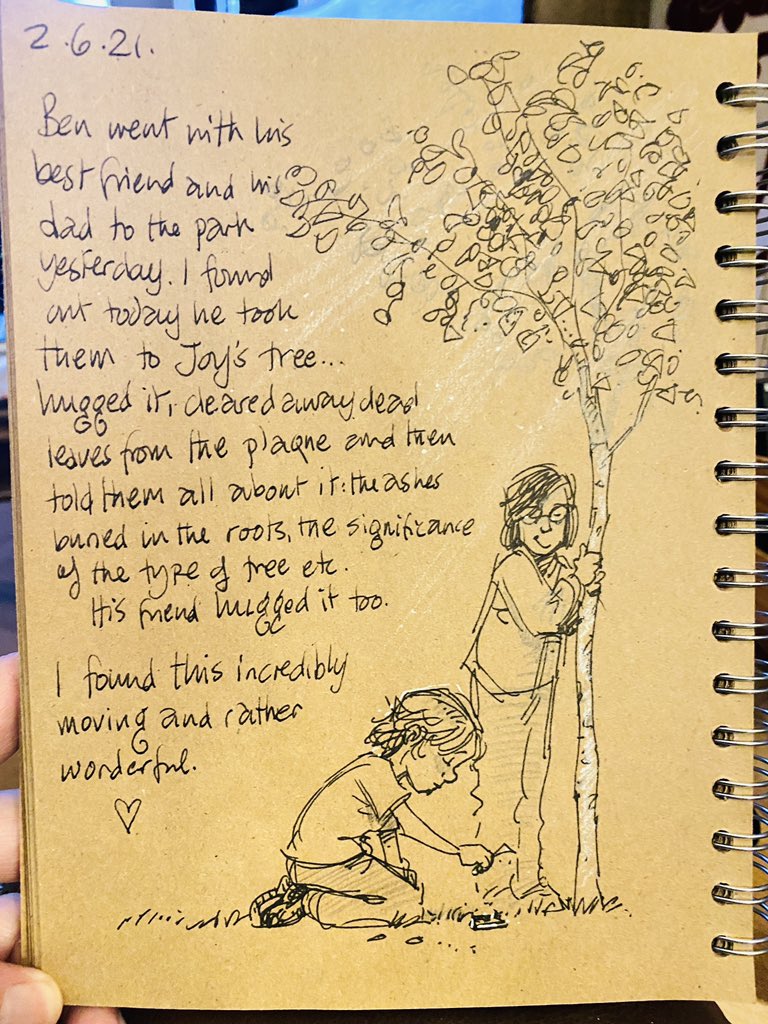 2.6.21.
Ben went with his
best friend and his
dad to the park
yesterday. I found
out today he took
them to Joy's tree...
hugged it, cleared away dead
leaves from the plaque and then
told them all about it: the ashes
buried in the roots, the significance
of the type of tree etc.
His friend hugged it too.
I found this incredibly
moving and rather
wonderful.
♡